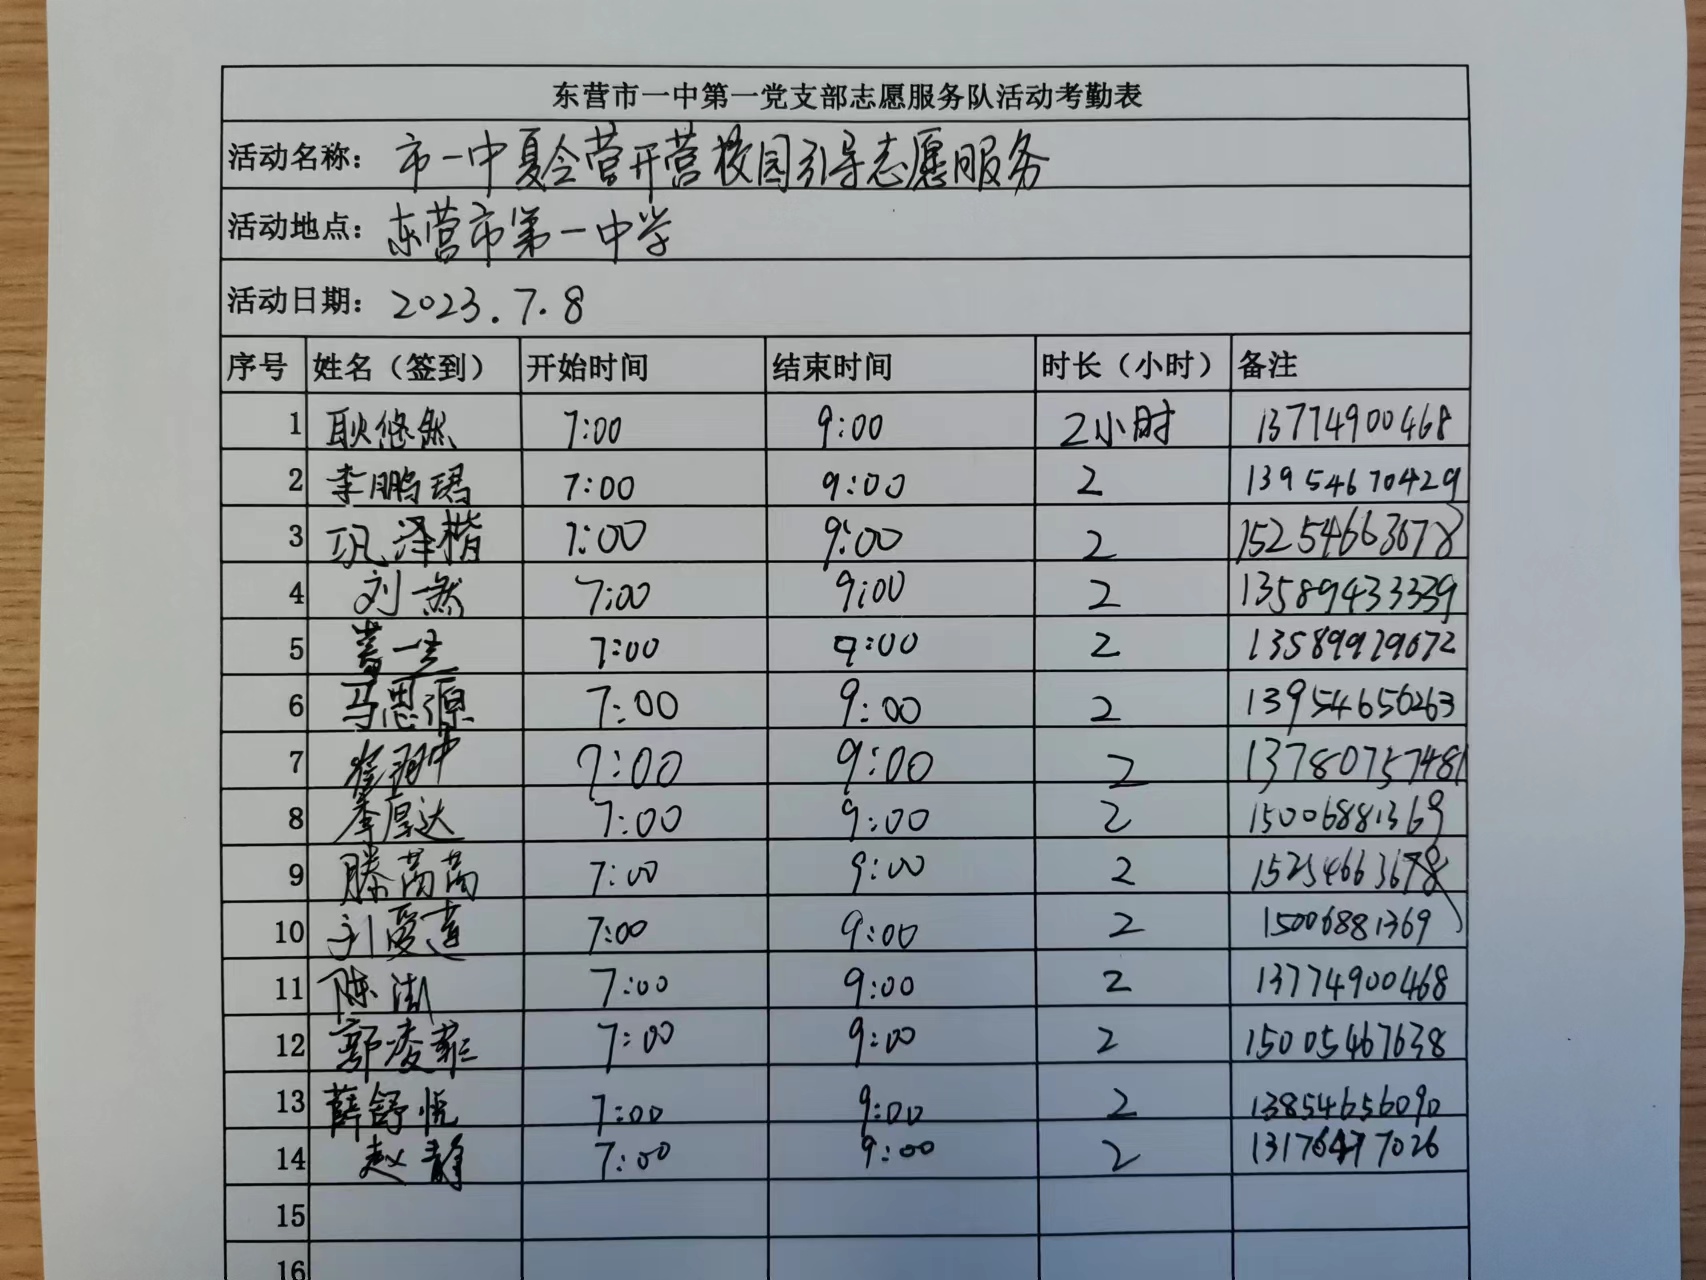 东营市一中第一党支部志愿服务队活动考勤表
活动名称： 市一中夏令营开营校园引导志愿服务
活动地点： 东营市第一中学
活动日期： 2023.7.8
序号 姓名（签到） 开始时间 结束时间 时长（小时） 备注
1 耿悠然 7:00 9:00 2小时 13774900468
2 李鹏珺 7:00 9:00 2 13954670429
3 巩泽楷 7:00 9:00 2 15254663678
4 刘燃 7:00 9:00 2 13589433339
5 7:00 9:00 2 13589979672
6 马思源 7:00 9:00 2 13954650263
7 崔羽中 7:00 9:00 2 13780757481
8 李厚达 7:00 9:00 2 15006881369
9 滕茼茼 7:00 9:00 2 15254663678
10 刘爱莲 7:00 9:00 2 15006881369
11 陈澍 7:00 9:00 2 13774900468
12 郭凌菲 7:00 9:00 2 15005467638
13 薛舒悦 7:00 9:00 2 13854656090
14 赵静 7:00 9:00 2 13176477026
15
16